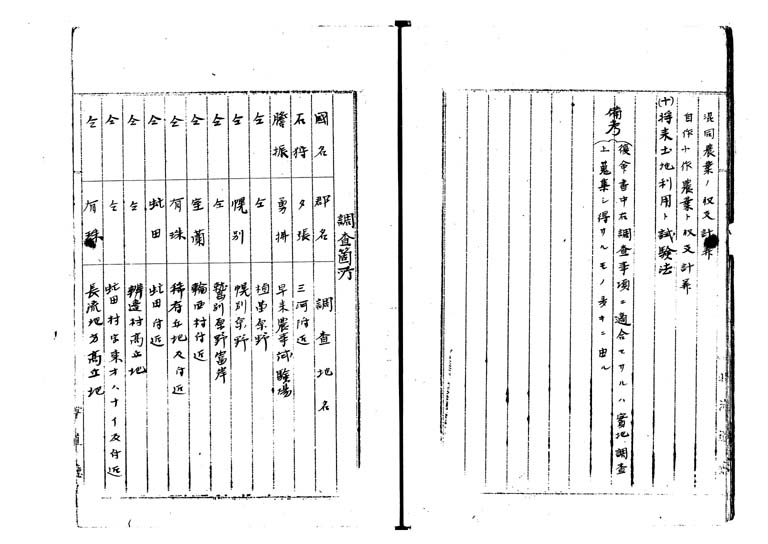 混同農業ノ収支計算
自作小作農業ト収支計算
(十)将来土地利用ト試験法
備考
復命書中右調査事項ニ適合セサルハ實地調査
上蒐集シ得サルモノ多キニ由ル
調査箇所
國名 郡名 調査地名
石狩 夕張 三河附近
膽振 勇拂 早来農事試験場
仝 仝 植苗原野
仝 幌別 幌別原野
仝 仝 鷲別原野富岸
仝 室蘭 輪西村付近
仝 有珠 稀府丘地及付近
仝 虻田 虻田付近
仝 仝 辨邊村高丘地
仝 仝 虻田村字東オハナイ及付近
仝 有珠 長流地方高丘地